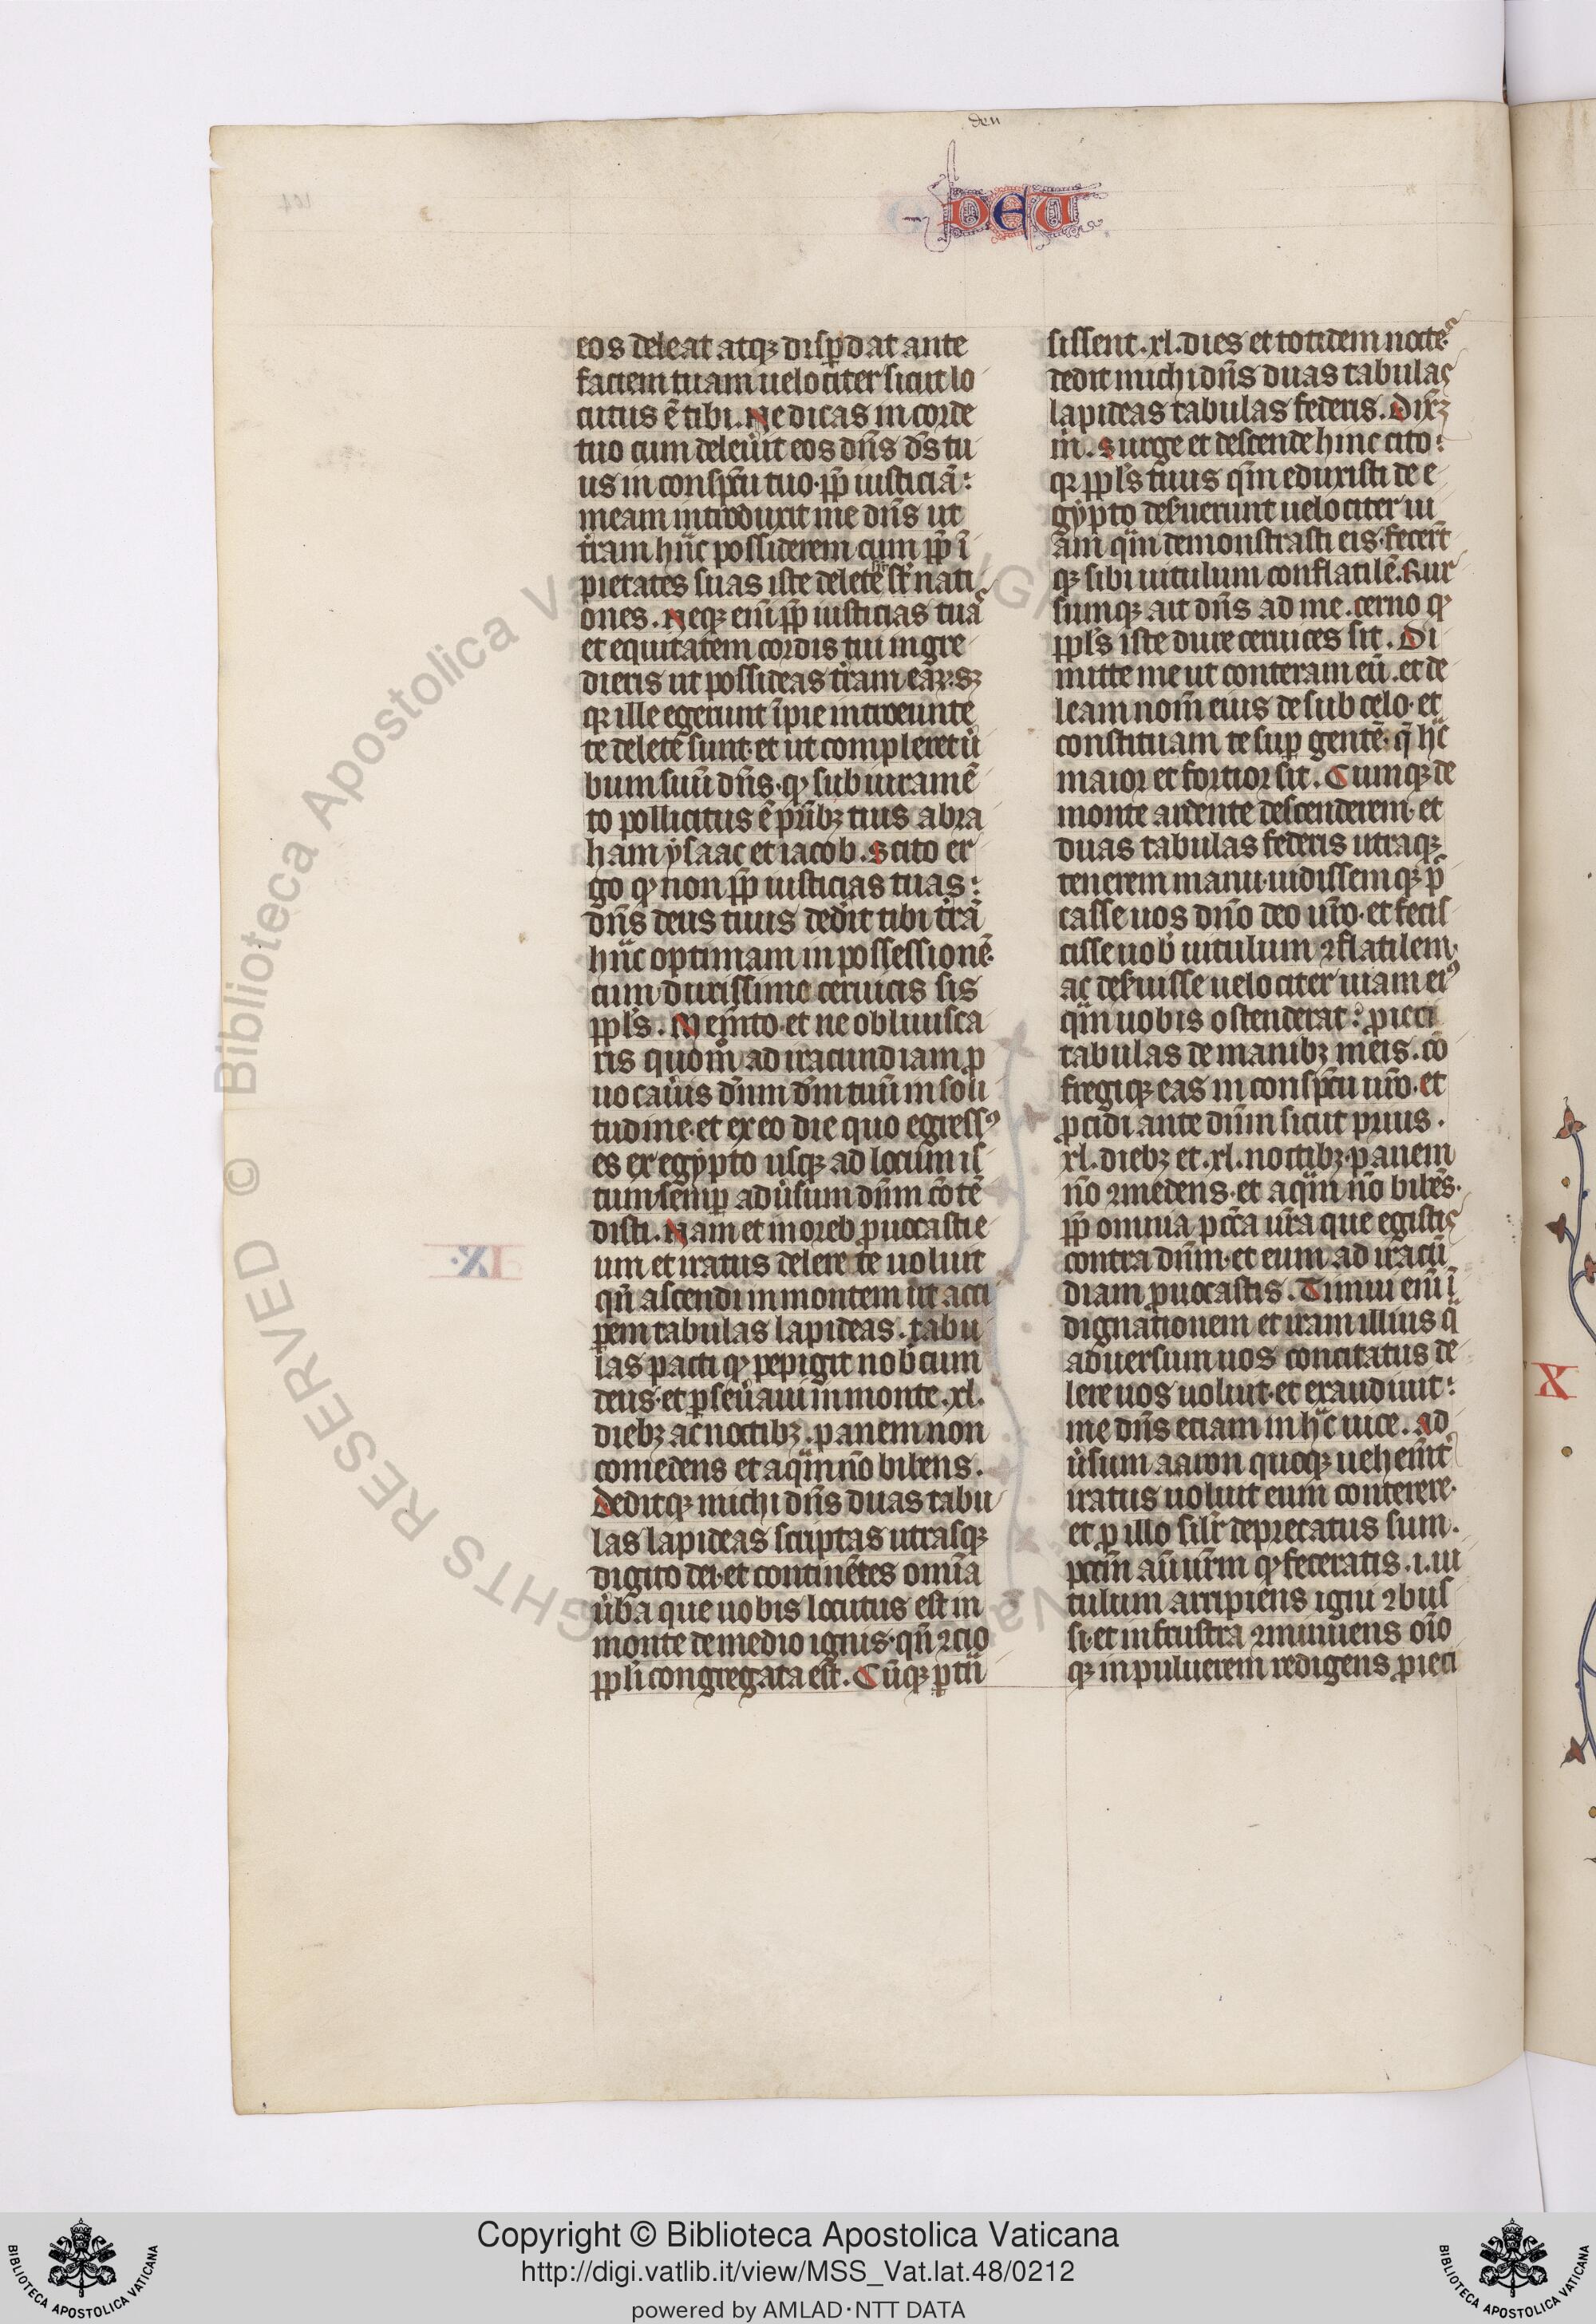 deu
DEU
eos deleat atqꝫ disꝑdat ante
faciem tuam uelociter sicut lo
cutus ē tibi. Ne dicas in corde
tuo cum deleu̾it eos dn̄s ds̄ tu
us in conspc̄u tuo· ꝓp̄ iusticiā:
meam introduxit me dn̄s ut
tr̄am hāc possiderem cum ꝓp̄ ī
pietates suas iste delete st̄ nati
ones. Neqꝫ eni̅ ꝓp̄ iusticias tuas
et equitatem cordis tui ingre
dieris ut possideas tr̄am eaꝝ: sꝫ
qꝛ ille egerunt īpie introeunte
te delete sunt· et ut compleret u̾
bum suū dn̄s· qͦ sub iuramē
to pollicitus ē pr̄ibꝫ tuis abra
ham ysaac et iacob. Scito er
go qͦ non ꝓp̄ iusticias tuas:
dn̄s deus tuus dedit tibi tr̄ā
hāc optimam in possessionē·
cum durissime ceruicis sis
ppl̄s. Mem̄to· et ne obliuisca
ris quom̄ ad iracundiam ꝓ
uocau̾is dn̄m dm̄ tuū in soli
tudine· et ex eo die quo egressꝰ
es ex egypto usqꝫ ad locum is
tum semꝑ adu̾sum dn̄m cōtē
disti. Nam et in oreb ꝓuocasti e
um et iratus delere te uoluit
IX.
qn̄ ascendi in montem ut acci
ꝑem tabulas lapideas. tabu
las pacti qͦ pepigit nob̾cum
deus· et ꝑseu̾aui in monte .xl.
diebꝫ ac noctibꝫ. panem non
comedens et aqm̄ nō bibens.
Deditqꝫ michi dn̄s duas tabu
las lapideas scriptas utrasqꝫ
digito dei· et continētes omīa
u̾ba que uobis locutus est in
monte de medio ignis· qn̄ ꝯcio
ppl̄i congregata est̄. Cūqꝫ ꝑtn̄
sissent .xl. dies et totidem noctes
dedit michi dn̄s duas tabulas
lapideas tabulas federis. Dix̄qꝫ
m̄. Surge et descende hinc cito:
qꝛ ppl̄s tuus qm̄ eduxisti de e
gypto deseruerunt uelociter ui
am qm̄ demonstrasti eis· fecer̄t
qꝫ sibi uitulum conflatilē. Rur
sumqꝫ ait dn̄s ad me. cerno qͦ
ppl̄s iste dure ceruices sit. Di
mitte me ut conteram eū. et de
leam nom̄ eius de sub celo· et
constituam te suꝑ gentē. q̄ hc̄
maior et fortior sit. Cumqꝫ de
monte ardente descenderem· et
duas tabulas federis utraqꝫ
tenerem manu· uidissemqꝫ p̄
casse uos dn̄o deo ur̄o· et fecis
cisse uob̾ uitulum ꝯflatilem·
ac deseruisse uelociter uiam eiꝰ
qm̄ uobis ostenderat: ꝓieci
tabulas de manibꝫ meis. cō
fregiqꝫ eas in conspc̄u ur̄o. et
ꝓcidi ante dn̄m sicut prius.
xl. diebꝫ et .xl. noctibꝫ· panem
nō ꝯmedens. et aqm̄ nō bibēs.
ꝓp̄ omnia pcc̄a ur̄a que egistis
contra dn̄m· et eum ad iracū
diam ꝓuocastis. Timui eni̅ ī
dignationem et iram illius q̄
aduersum uos concitatus de
lere uos uoluit· et exaudiuit:
me dn̄s etiam in hc̄ uice. Ad
u̾sum aaron quoqꝫ uehem̄t̾
iratus uoluit eum conterere.
et ꝓ illo silr̄ deprecatus sum.
pccm̄ au̅ ur̄m qͦ feceratis .i. ui
tulum arripiens igni ꝯbus
si· et in frustra ꝯminuens oīo
qꝫ in puluerem redigens ꝓieci
X
© Biblioteca Apostolica Vaticana
RIGHTS RESERVED
Copyright © Biblioteca Apostolica Vaticana
http://digi.vatlib.it/view/MSS_Vat.lat.48/0212
powered by AMLAD·NTT DATA
BIBLIOTECA APOSTOLICA VATICANA
BIBLIOTECA APOSTOLICA VATICANA